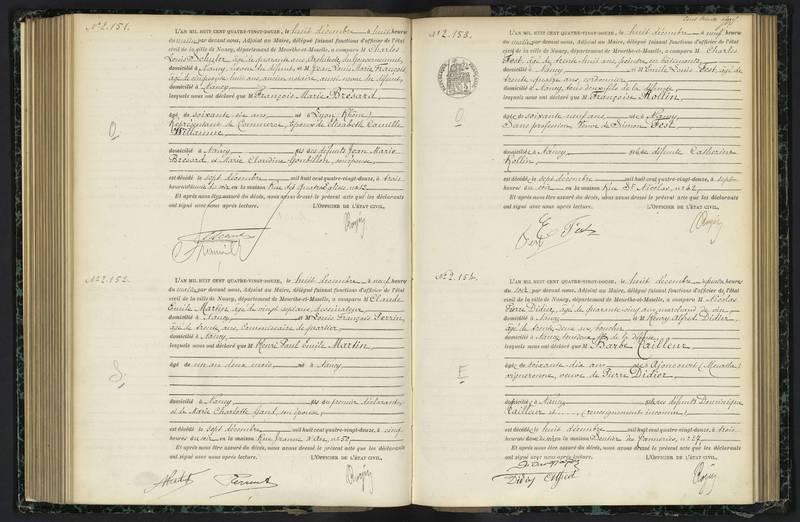 N° 2.151.
L'AN MIL HUIT CENT QUATRE-VINGT-DOUZE, le huit décembre à huit heures
du matin par devant nous, Adjoint au Maire, délégué faisant fonctions d'officier de l'état
civil de la ville de Nancy, département de Meurthe-et-Moselle, a comparu M Charles
Louis âgé de quarante ans Architecte du Gouvernement,
domicilié à Nancy, du défunt, et M Jean Louis Marie François
huit ans, ancien notaire, aussi du défunt,
domicilié à Nancy
lesquels nous ont déclaré que M François Marie Brésard
âgé de soixante dix ans, né à Lyon (Rhône)
Représentant de Commerce, Epoux de Elisabeth Camille
Willaume
domicilié à Nancy fils des défunts Jean Marie
Brésard et Marie Claudine son épouse,
est décédé le sept décembre mil huit cent quatre-vingt-douze, à trois
heures du soir en la maison Rue des Quatre Eglises, n° 12,
Et après nous être assuré du décès, nous avons dressé le présent acte que les déclarants
ont signé avec nous après lecture. L'OFFICIER DE L'ÉTAT CIVIL,
N° 2.152.
L'AN MIL HUIT CENT QUATRE-VINGT-DOUZE, le huit décembre à neuf heures
du matin par devant nous, Adjoint au Maire, délégué faisant fonctions d'officier de l'état
civil de la ville de Nancy, département de Meurthe-et-Moselle, a comparu M Claude
Emile Martin âgé de vingt sept ans, dessinateur
domicilié à Nancy et M Louis François Perrin,
âgé de trente ans, Commissaire de quartier
domicilié à Nancy,
lesquels nous ont déclaré que M Henri Paul Emile Martin
âgé de un an deux mois, né à Nancy
domicilié à Nancy fils du premier déclarant
et de Marie Charlotte son épouse,
est décédé le sept décembre mil huit cent quatre-vingt-douze, à cinq
heures du soir en la maison Rue Jeanne d'Arc, n° 50,
Et après nous être assuré du décès, nous avons dressé le présent acte que les déclarants
ont signé avec nous après lecture. L'OFFICIER DE L'ÉTAT CIVIL,
N° 2.153.
L'AN MIL HUIT CENT QUATRE-VINGT-DOUZE, le huit décembre à neuf heures
du matin par devant nous, Adjoint au Maire, délégué faisant fonctions d'officier de l'état
civil de la ville de Nancy, département de Meurthe-et-Moselle, a comparu M Charles
Fest, âgé de trente huit ans, peintre en bâtiments,
domicilié à Nancy et M Emile Louis Fest, âgé de
trente quatre ans, cordonnier
domicilié à Nancy, tous deux fils de la défunte,
lesquels nous ont déclaré que M Françoise Rollin,
âgée de soixante neuf ans née à Nancy
Sans profession, Veuve de Simon Fest,
domiciliée à Nancy fille de défunte Catherine
Rollin,
est décédée le sept décembre mil huit cent quatre-vingt-douze, à sept
heures du soir en la maison Rue St Nicolas, n° 42,
Et après nous être assuré du décès, nous avons dressé le présent acte que les déclarants
ont signé avec nous après lecture. L'OFFICIER DE L'ÉTAT CIVIL,
N° 2.154.
L'AN MIL HUIT CENT QUATRE-VINGT-DOUZE, le huit décembre heures
du soir par devant nous, Adjoint au Maire, délégué faisant fonctions d'officier de l'état
civil de la ville de Nancy, département de Meurthe-et-Moselle, a comparu M Nicolas
Pierre Didier, âgé de quarante cinq ans, marchand de vin
domicilié à Nancy et M Henry Alfred Didier,
âgé de trente deux ans boucher
domicilié à Nancy, tous deux fils de la défunte
lesquels nous ont déclaré que M Barbe Cailleur
âgée de soixante dix ans née à Ajoncourt (Meurthe)
vigneronne, veuve de Pierre Didier,
domiciliée à Nancy fille des défunts Dominique
Cailleur et (renseignement inconnu)
est décédée le huit décembre mil huit cent quatre-vingt-douze, à trois
heures du matin en la maison Sentier de n° 27,
Et après nous être assuré du décès, nous avons dressé le présent acte que les déclarants
ont signé avec nous après lecture. L'OFFICIER DE L'ÉTAT CIVIL,